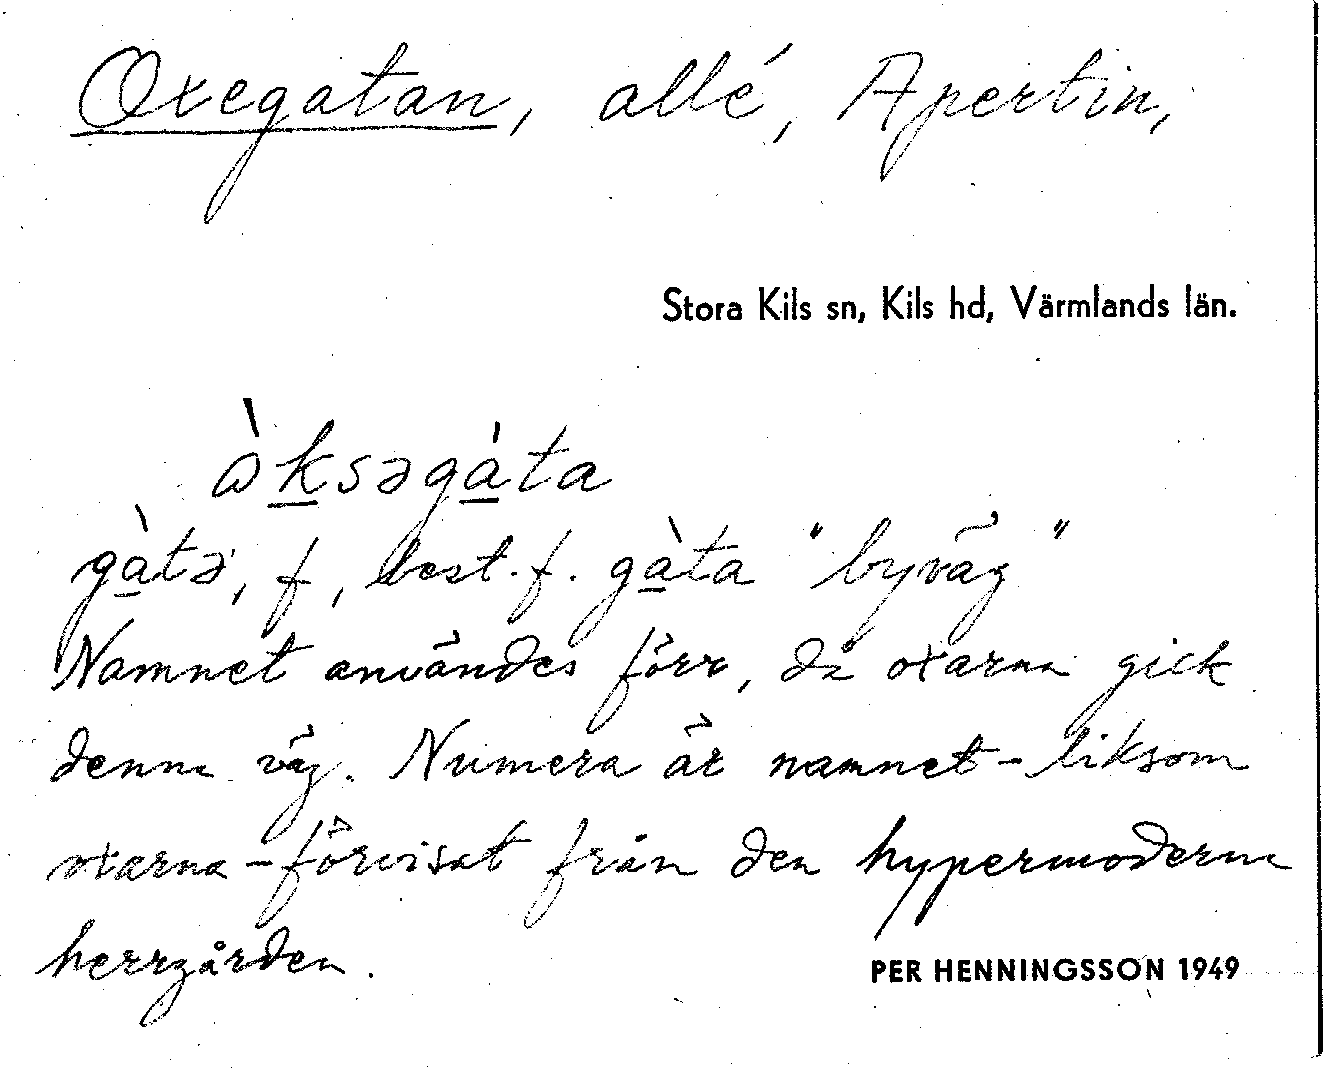 Oxegatan, allé, Apertin,
Stora Kils sn, Kils hd, Värmlands län.
ɷ̀ksəgàta
gàtə, f, best. f. gàta "byväg"
Namnet användes förr, då oxarna gick
denna väg. Numera är namnet - liksom
oxarna - förvisat från den hypermoderna
herrgården.
PER HENNINGSSON 1949